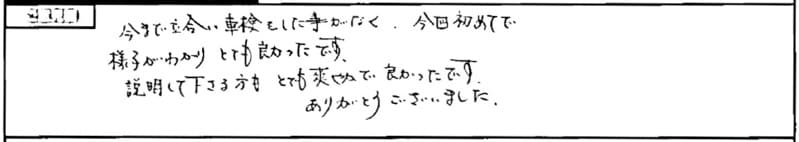 今まで立合い車検をした事がなく、今回初めてで
様子がわかり とても良かったです。
説明して下さる方も とても爽やかで 良かったです。
ありがとう ございました。